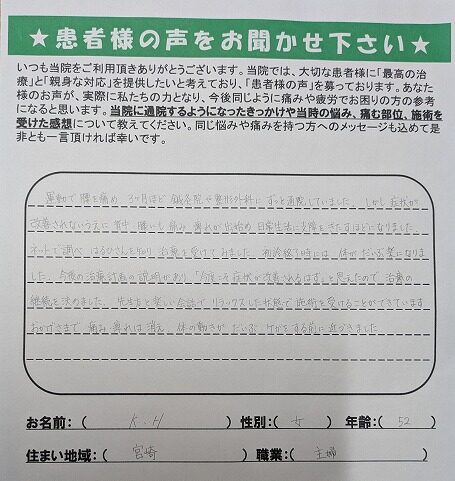 ★患者様の声をお聞かせ下さい★
いつも当院をご利用頂きありがとうございます。当院では、大切な患者様に「最高の治
療」と「親身な対応」を提供したいと考えており、「患者様の声」を募っております。あなた
様のお声が、実際に私たちの力となり、今後同じように痛みや疲労でお困りの方の参考
になると思います。当院に通院するようになったきっかけや当時の悩み、痛む部位、施術を
受けた感想について教えてください。同じ悩みや痛みを持つ方へのメッセージも込めて是
非とも一言頂ければ幸いです。
運動で腰を痛め 3ヶ月ほど 鍼灸院や整形外科に ずっと通院していました。しかし 症状が
改善されないうえに 背中、腰にも 痛み 痺れが出始め 日常生活に支障をきたすほどになりました。
ネットで調べ はるひさんを知り 治療を受けてみました。初診終了時には 体が だいぶ楽になりま
した。今後の治療計画の説明があり「今度こそ症状が改善されるはず」と思えたので 治療の
継続を決めました。先生方と楽しい会話で リラックスした状態で 施術を受けることができています
おかげさまで 痛み 痺れは消え 体の動きが だいぶ ケガをする前に近づきました
お名前：（ K.H ） 性別：（ 女 ） 年齢：（ 52 ）
住まい地域：（ 宮崎 ） 職業：（ 主婦 ）